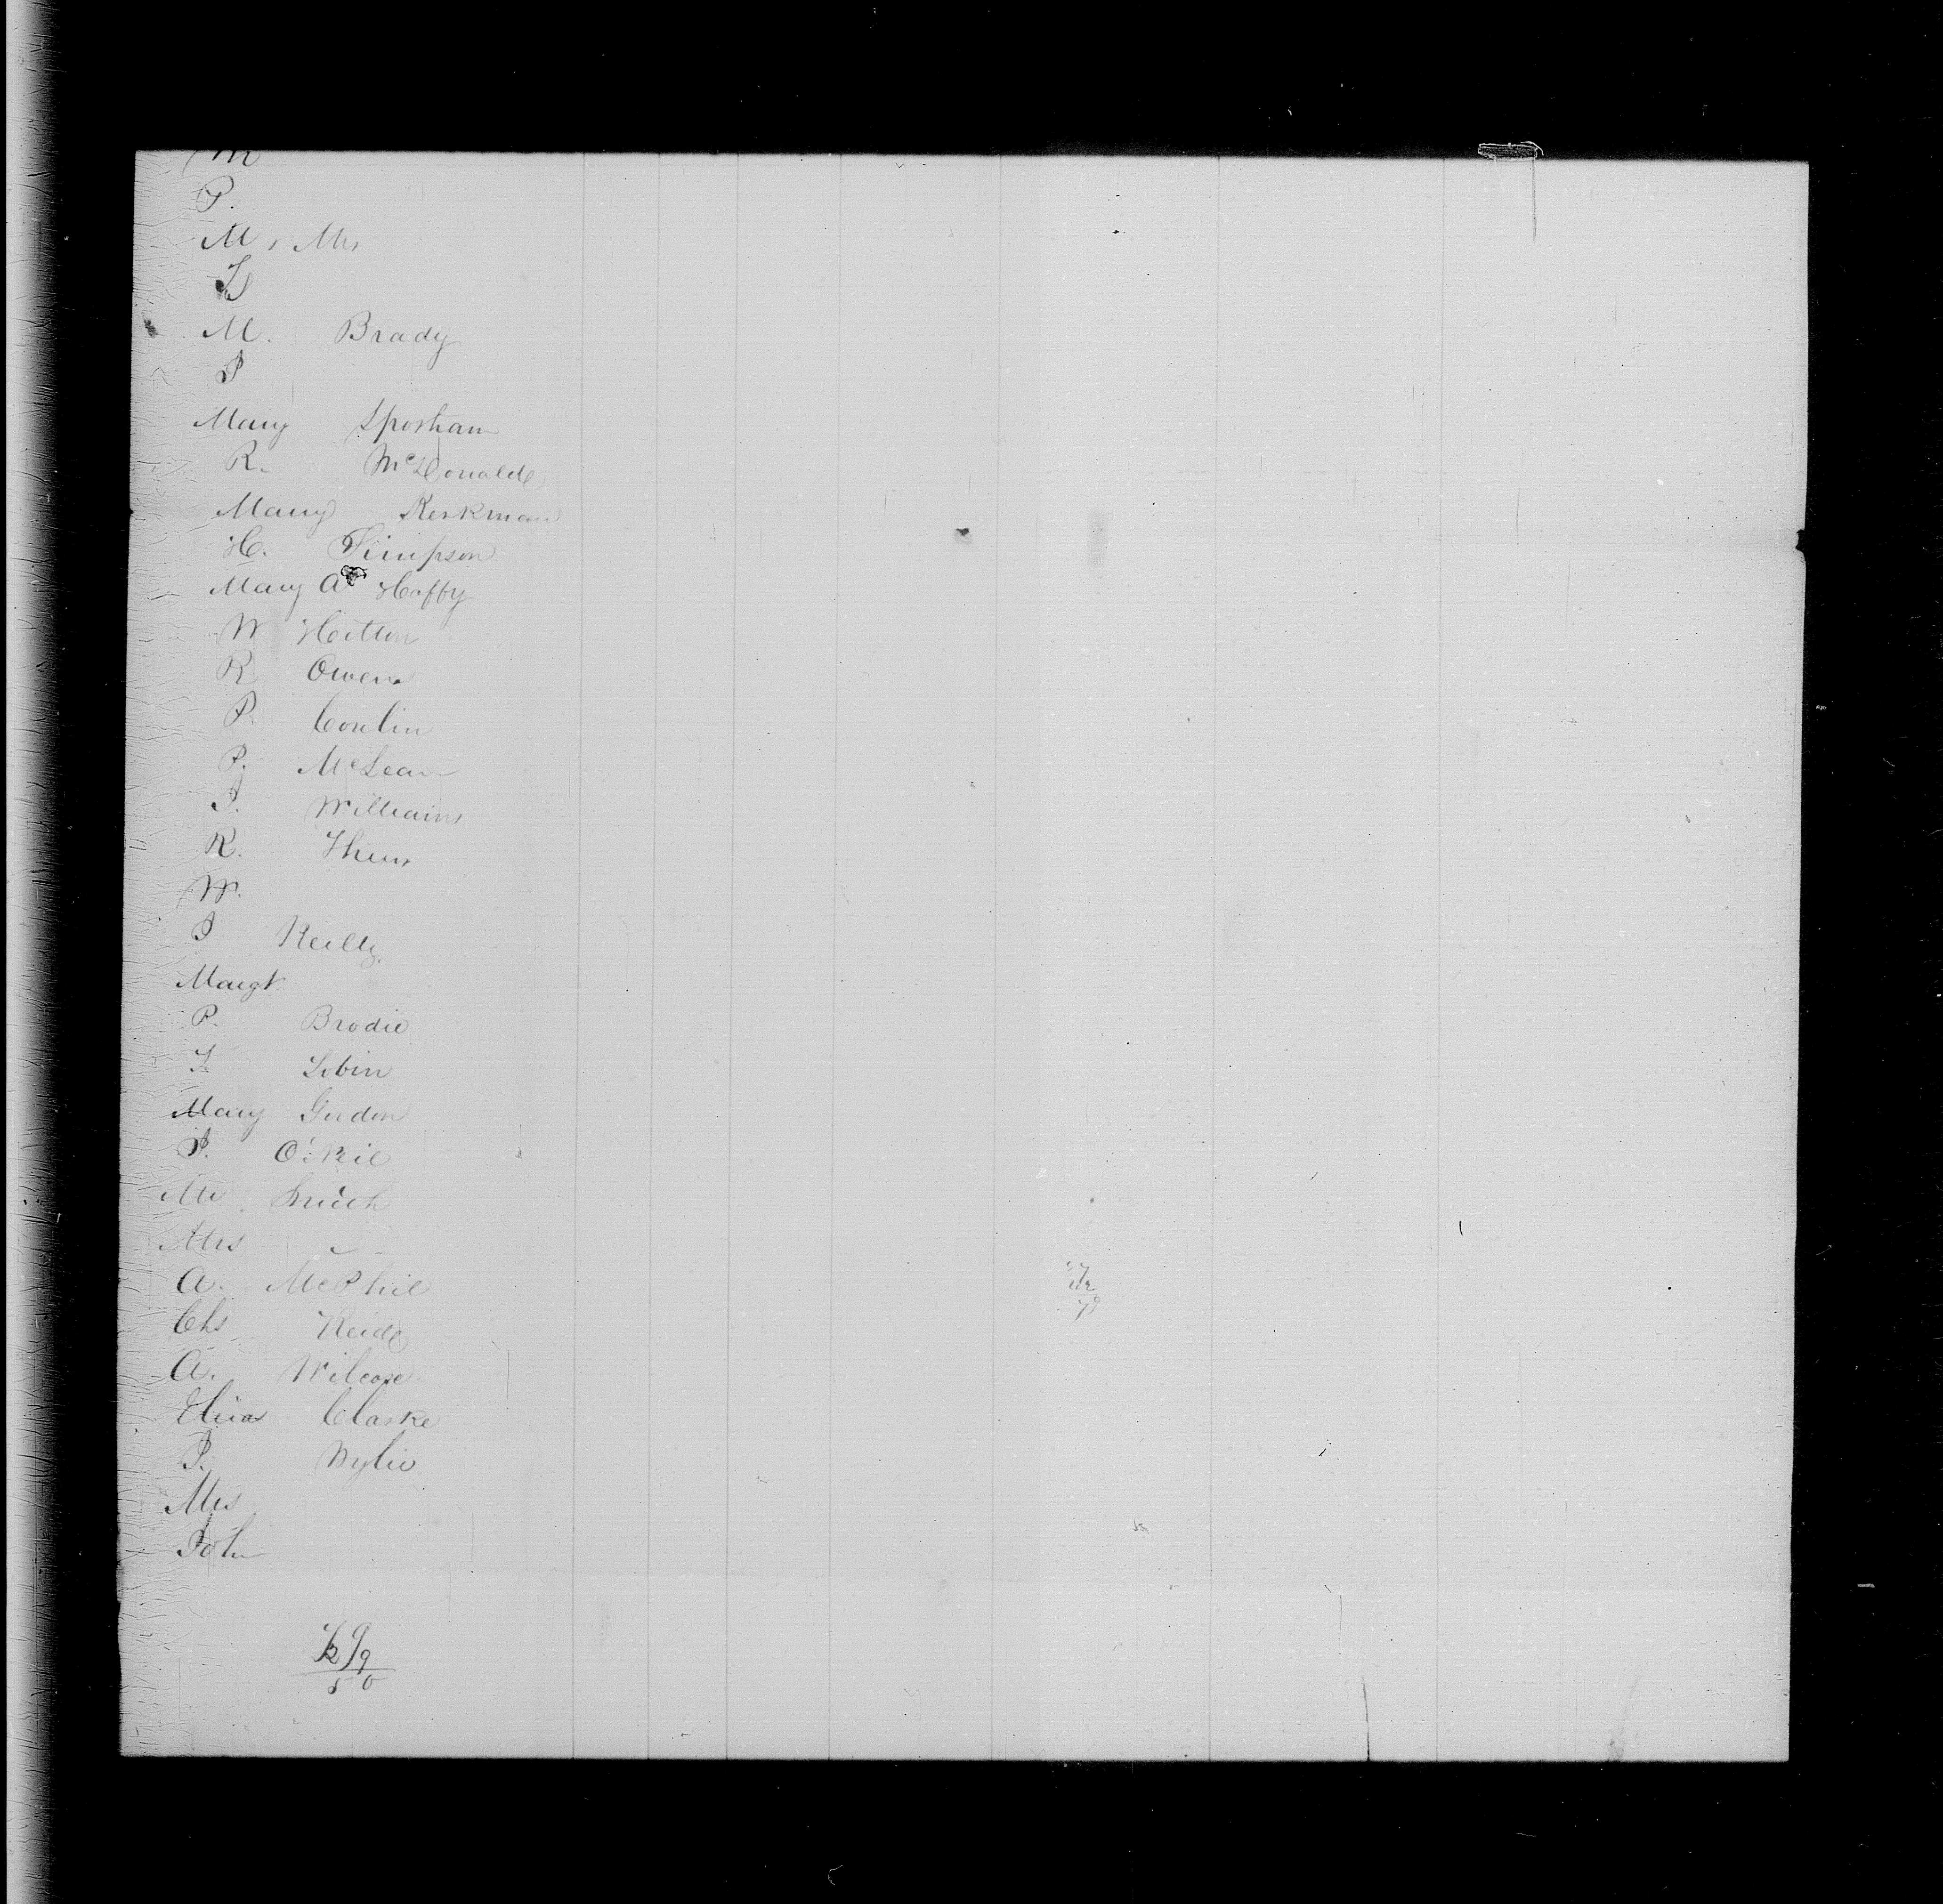 M
P.
Mr Mrs
M. Brady
P
Mary Sporham
R. McDonald
Mary Kerkman
H. Simpson
Mary A Haffy
W Hatton
R Owens
P. Conlin
P. McLean
J. Williams
R.
W.
J Reilly
Margt
P. Brodie
T. Tobin
Mary Gordon
P. O'Neil
Mr Smith
Mrs
A. McPhil
Chs Reid
A. Wilcox
Eliza Clarke
J. Wylie
Mrs
John
50